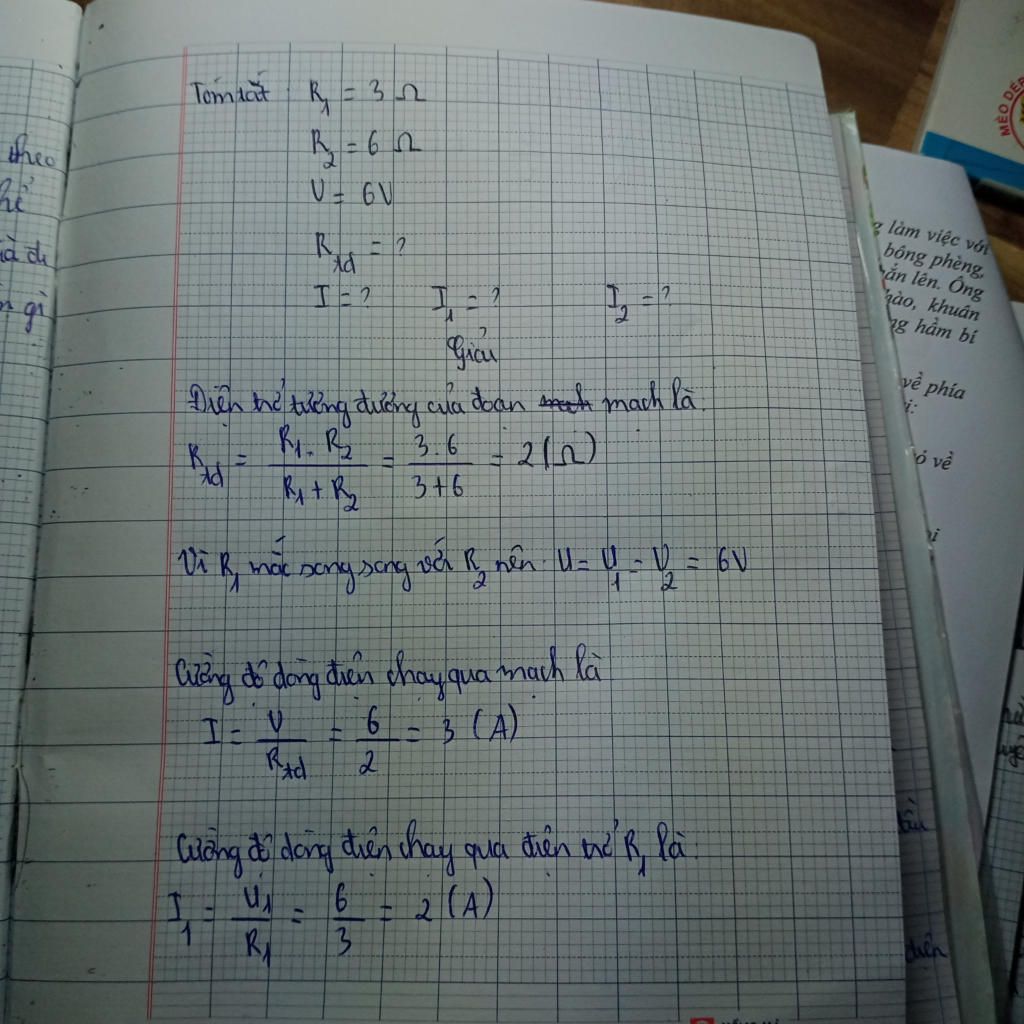 Tóm tắt R₁ = 3 Ω
R₂ = 6 Ω
U = 6V
Rtđ = ?
I = ? I₁ = ? I₂ = ?
Giải
Điện trở tương đương của đoạn mạch là:
Rtđ = R₁ . R₂ / R₁ + R₂ = 3 . 6 / 3 + 6 = 2 (Ω)
Vì R₁ mắc song song với R₂ nên U = U₁ = U₂ = 6V
Cường độ dòng điện chạy qua mạch là
I = U / Rtđ = 6 / 2 = 3 (A)
Cường độ dòng điện chạy qua điện trở R₁ là:
I₁ = U₁ / R₁ = 6 / 3 = 2 (A)
theo
gì
MÈO DẾP
làm việc với
bông phèng,
ẳn lên. Ông
hào, khuân
ng hầm bí
về phía
ỏ về
điện